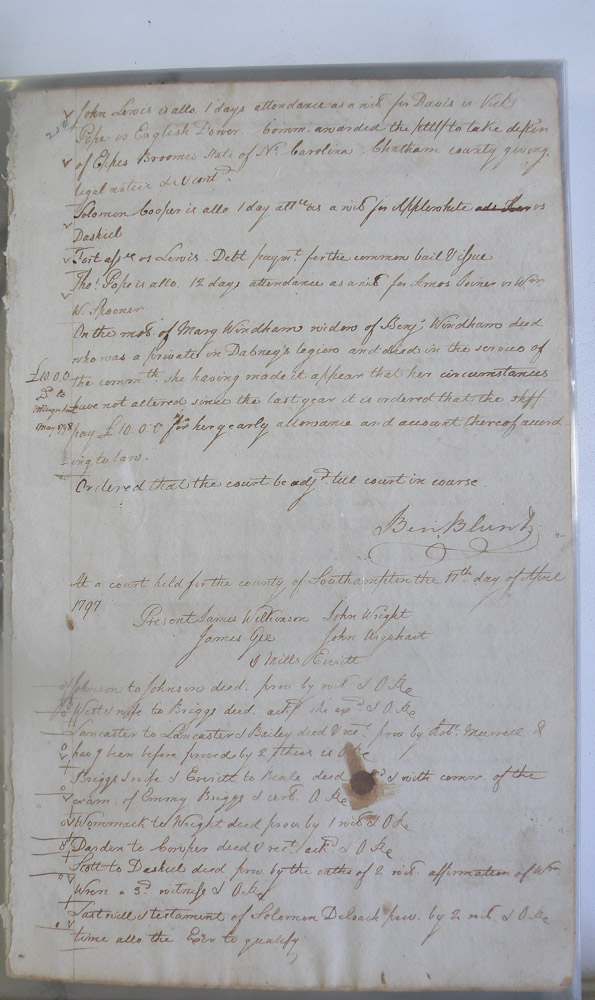 John Lewis is allo. 1 days attendance as a witt for Davis vs Vick
Pope vs English Power. Comm. awarded the pltff to take depn
of Elpes Broomes State of No. Carolina Chatham county giving
legal notice &c v cont.d
Solomon Cooper is allo. 1 day attce as a witt for Applewhite vs
Daskiel
Fort assee vs Lewis. Debt paymt. for the common bail & issue
Tho.s Pope is allo. 12 days attendance as a witt for Amos Joiner vs Wm.
W. Spooner
On the mot. of Mary Windham widow of Benj.a Windham deed
who was a private in Dabney's legion and died in the service of
the commth. she having made it appear that her circumstances
have not altered since the last year it is ordered that the shff
pay £10.0.0 for her yearly allowance and account thereof accord
ing to law.
£10.0.0
May 1798
Ordered that the court be adj.d till court in course.
Ben. Blunt
At a court held for the county of Southampton the 17th day of April
1797
Present James Wilkinson John Wright
James Gee John Urquhart
& Mills Everitt
Johnson to Johnson deed. prov. by witt & O Re
West & wife to Briggs deed. ackd & O Re
Lancaster to Lancaster & Bailey deed & rect. prov by Robt. Murrell &
havg been before proved by 2 others is O Re
Briggs & wife & Everitt to Beale deed & with comn. of the
exam. of Emmy Briggs & cert. O Re
Wommack to Wright deed prov. by 1 witt & O Re
Darden to Cowper deed & rect. ackd. & O Re
Scott to Daskiel deed prov. by the oaths of 2 witt. affirmation of Wm
Wren a 3d. witness & O Re
Last will & testament of Solomon Deloach prov. by 2 witt. & O Re
time allo the Exrx to qualify